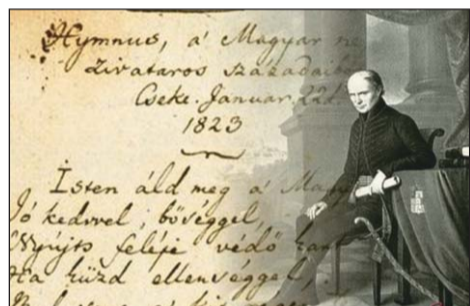 Hymnus, a' Magyar
zivataros századaib
Cseke. Januar. 22d.
1823
Isten áld meg a' Magy
Jó kedvvel, bőséggel,
Nyújts feléje védő
Ha küzd ellenséggel,